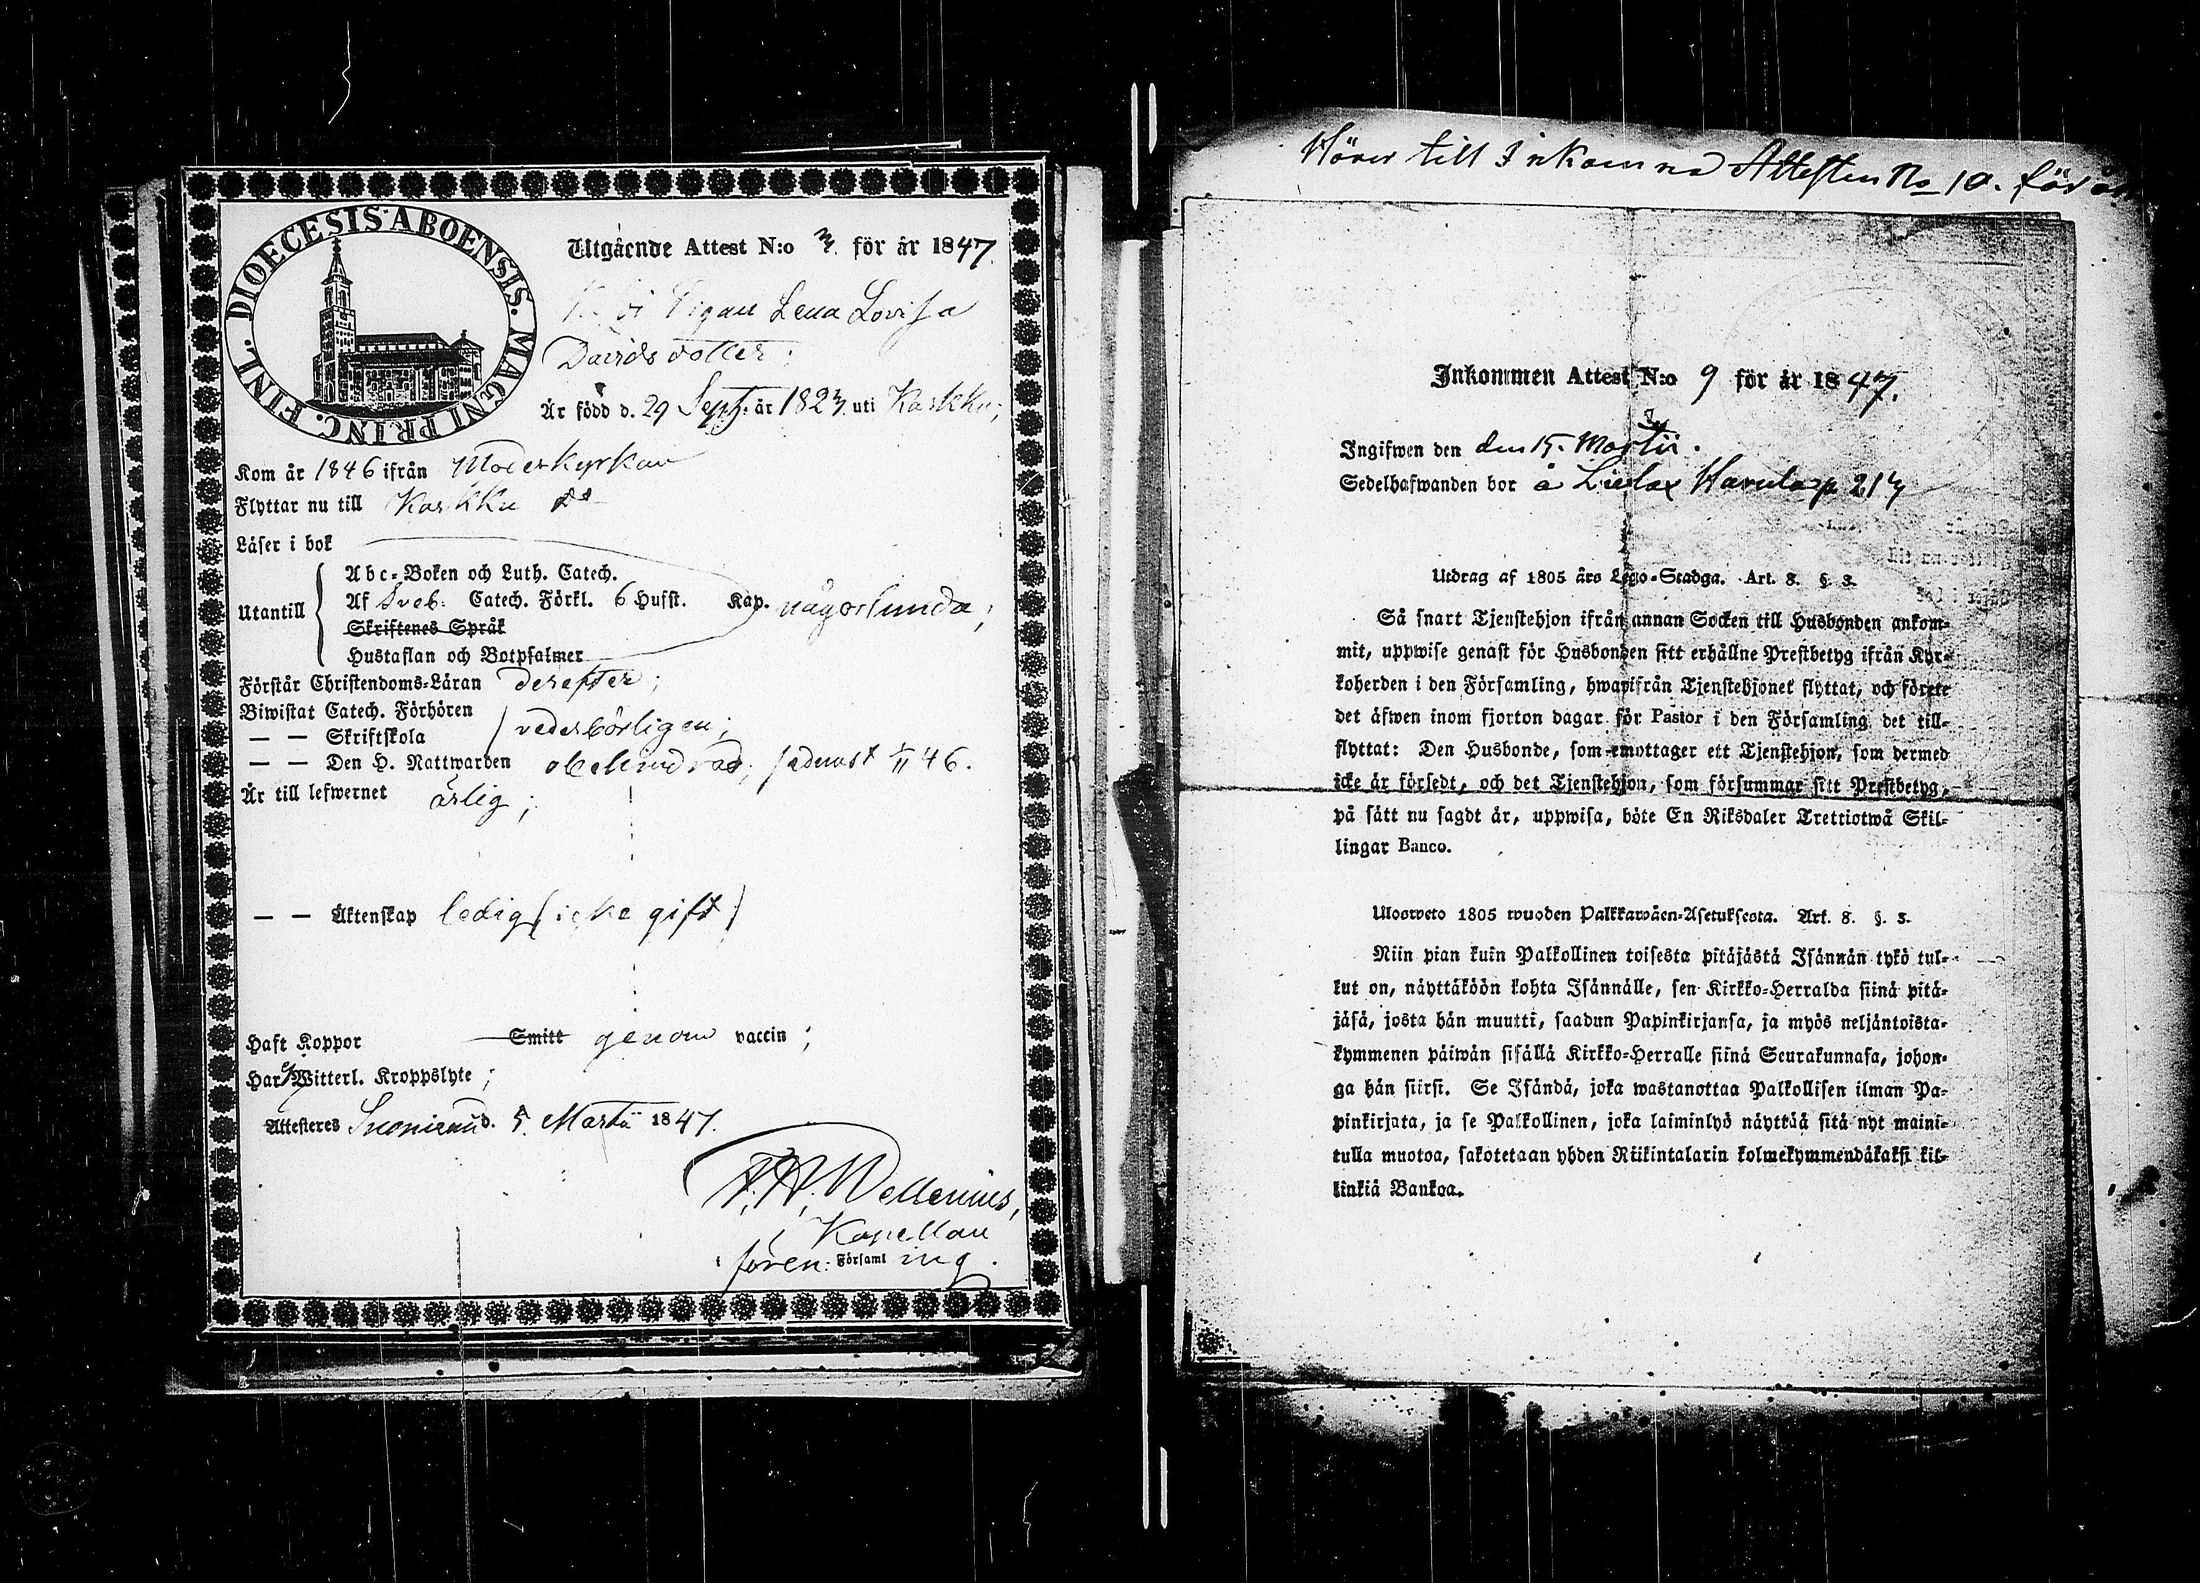 DIOECESIS ABOENSIS. MAGNI PRINC. FINL.
Utgående Attest N:o 3. för år 1847.
Pigan Lena Lovisa
Davidsdotter;
Är född d. 29 Sept. år 1823. uti Karkku;
Kom år 1846 ifrån Moderkyrkan
Flyttar nu till Karkku
Läser i bok
Utantill
Abc-Boken och Luth. Catech.
Af Sveb. Catech. Förkl. 6 Hufst. Kap. någorlunda;
Skriftenes Språk
Hustaflan och Botpsalmer
Förstår Christendoms-Läran derefter;
Biwistat Catech. Förhören
— — Skriftskola vederbörligen;
— — Den H. Nattwarden obehindrad, sednast 1/11 46.
Är till lefwernet ärlig;
— — Äktenskap ledig (icke gift)
Haft Koppor Smitt genom vaccin;
Har Witterl. Kroppslyte;
Attesteres Suoniemi d. 5. Martii 1847.
Wellenius,
Kapellan
i foren: Församl ing.
Hörer till Inkomna Attesten No 10. för
Inkommen Attest N:o 9 för år 1847.
Ingifwen den den 15. Martii.
Sedelhafwanden bor å p 213
Utdrag af 1805 års Lego-Stadga. Art. 8. §. 3.
Så snart Tjenstehjon ifrån annan Socken till Husbonden ankom-
mit, uppwise genast för Husbonden sitt erhållne Prestbetyg ifrån Kyr-
koherden i den Församling, hwarifrån Tjenstehjonet flyttat, och förete
det äfwen inom fjorton dagar för Pastor i den Församling det till-
flyttat: Den Husbonde, som emottager ett Tjenstehjon, som dermed
icke är försedt, och det Tjenstehjon, som försummar sitt Prestbetyg,
på sätt nu sagdt är, uppwisa, böte En Riksdaler Trettiotwå Skil-
lingar Banco.
Ulosweto 1805 wuoden Palkkawäen-Asetuksesta. Art. 8. §. 3.
Niin pian kuin Palkollinen toisesta pitäjästä Isännän tykö tul-
kut on, näyttäköön kohta Isännälle, sen Kirkko-Herralda siinä pitä-
jäsä, josta hän muutti, saadun Papinkirjansa, ja myös neljäntoista-
kymmenen päiwän sisällä Kirkko-Herralle siinä Seurakunnasa, johon-
ga hän siirsi. Se Isändä, joka wastanottaa Palkollisen ilman Pa-
pinkirjata, ja se Palkollinen, joka laiminlyö näyttää sitä nyt maini-
tulla muotoa, sakotetaan yhden Riikintalarin kolmekymmendäkaksi kil-
linkiä Bankoa.